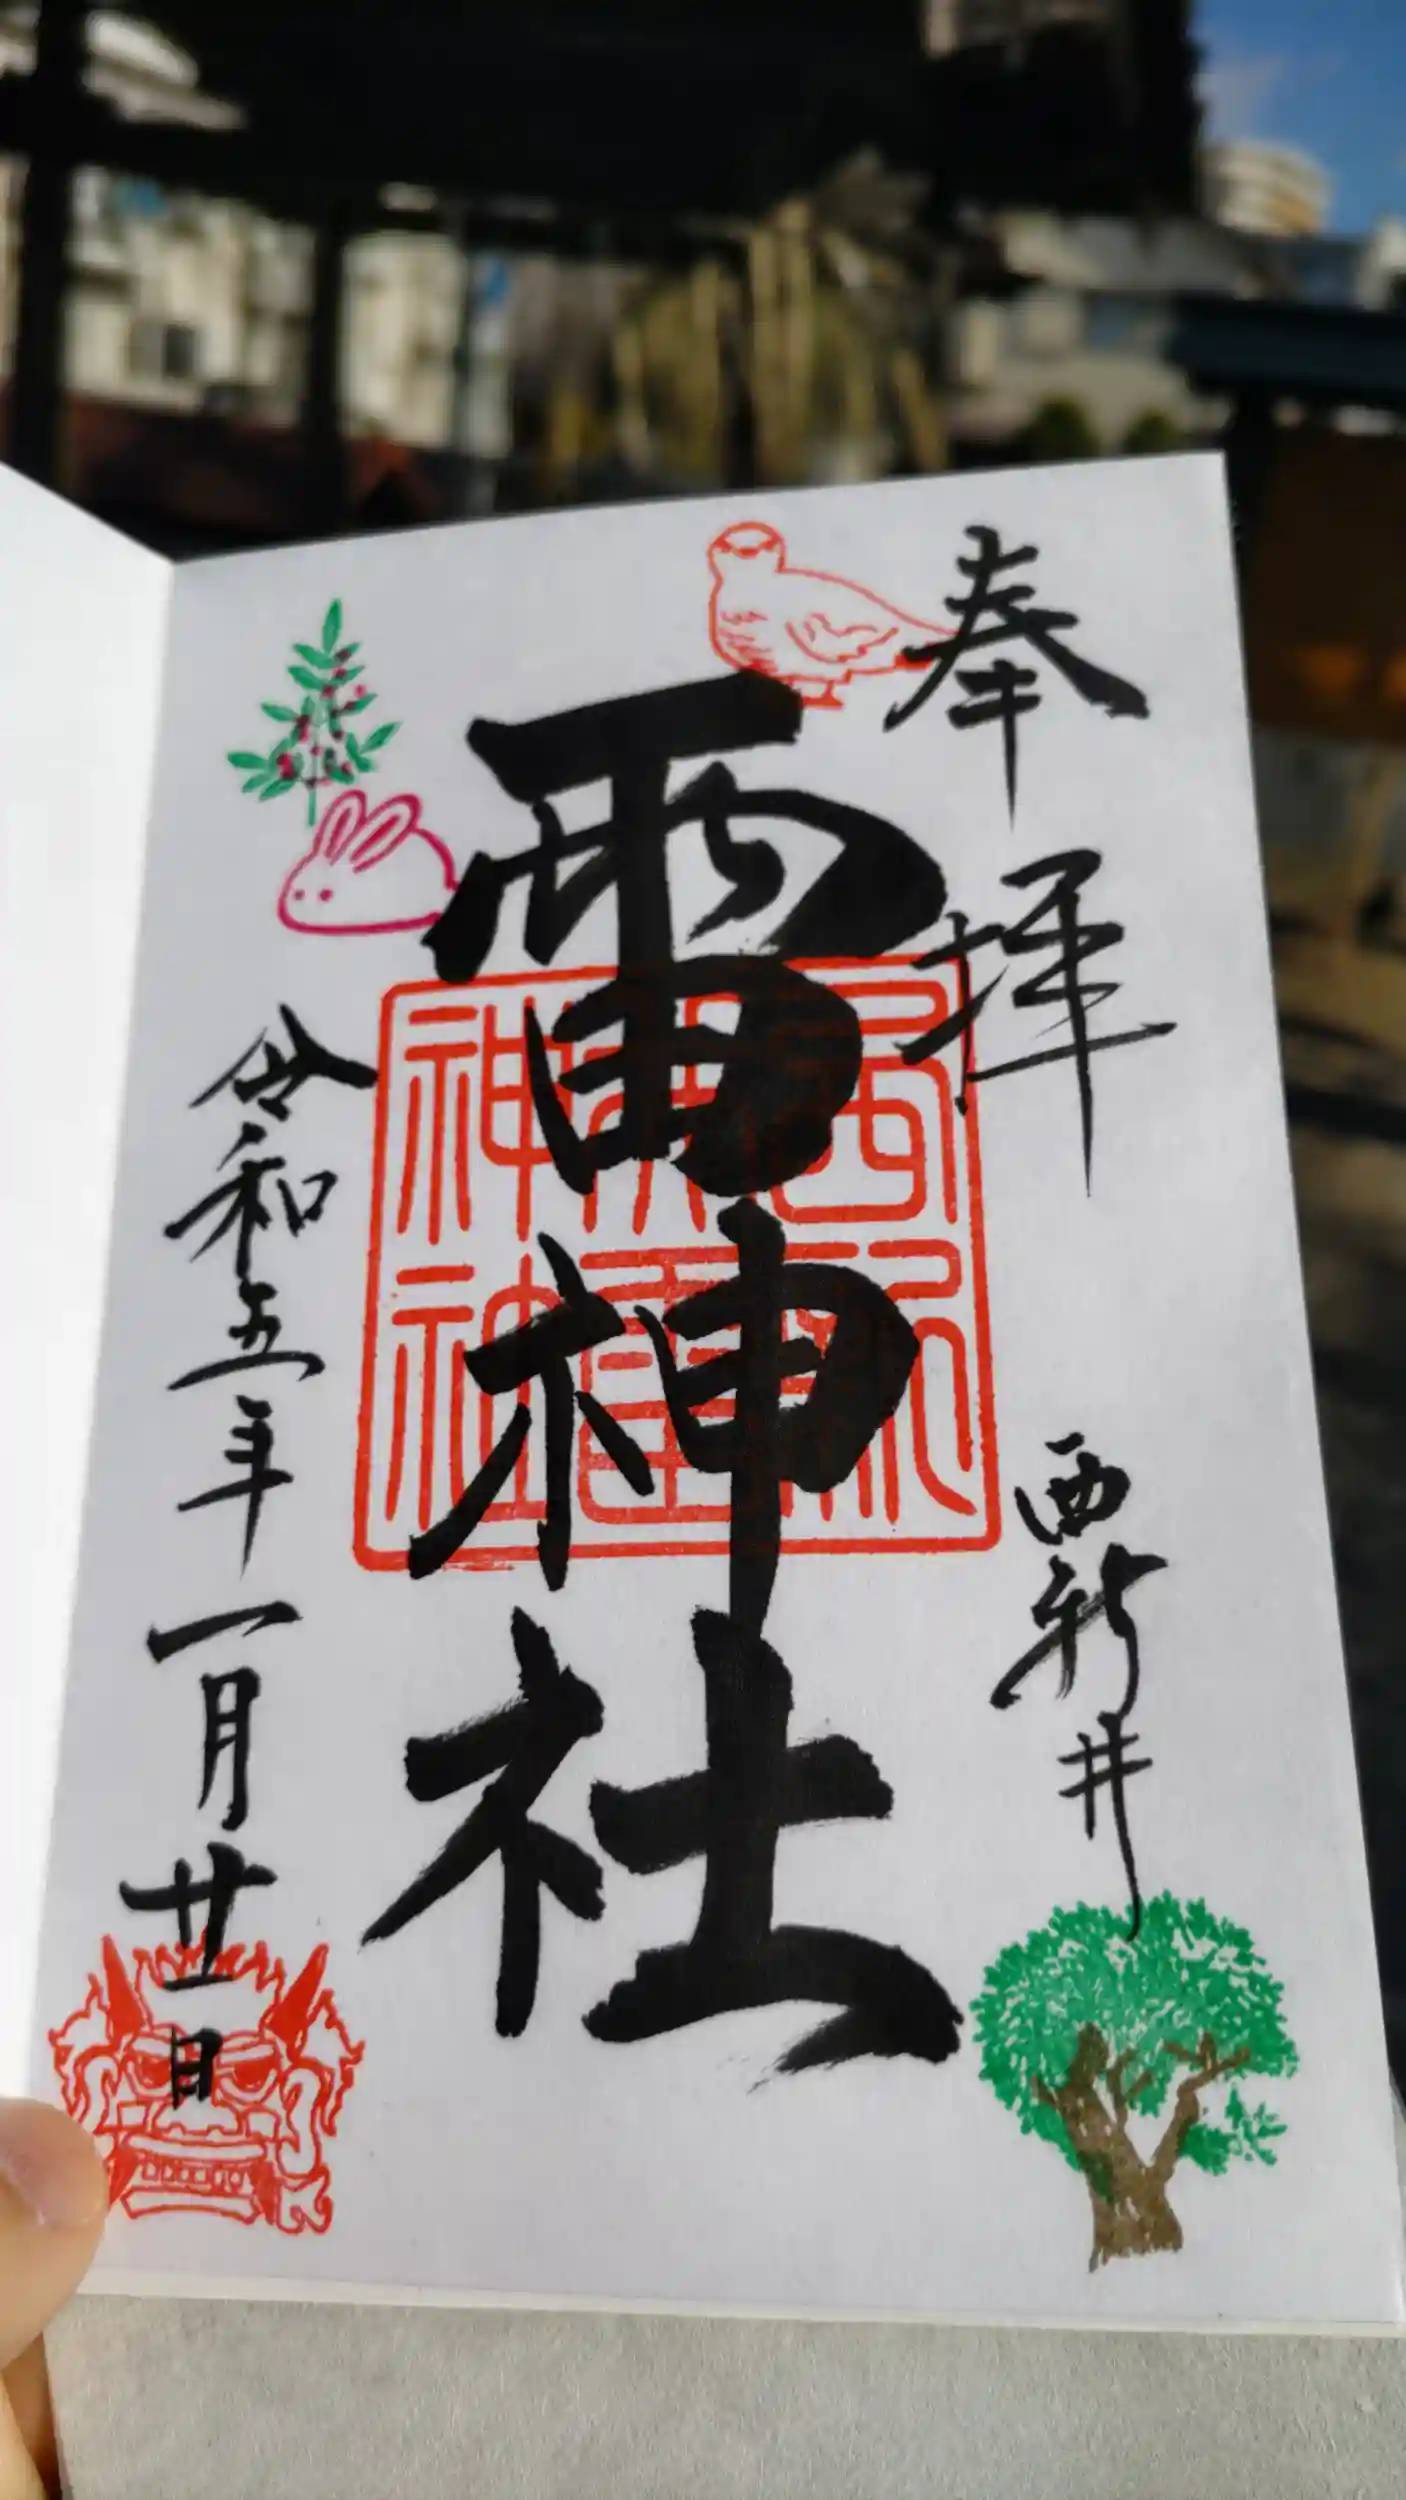 奉拝
西新井
雷神社
令和五年一月廿一日